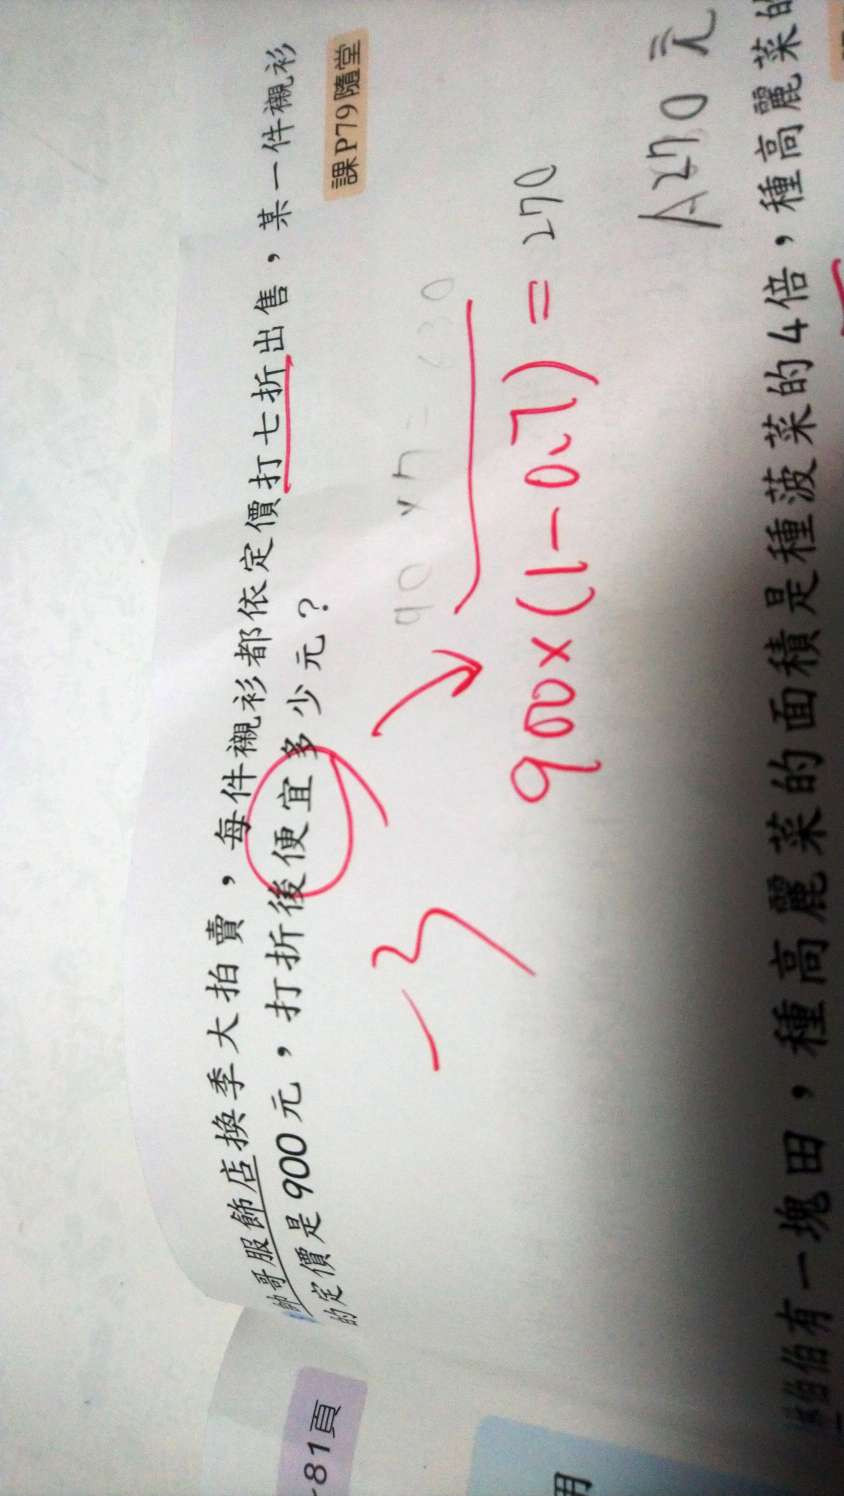 課P79隨堂
帥哥服飾店換季大拍賣，每件襯衫都依定價打七折出售，某一件襯衫
的定價是900元，打折後便宜多少元？
90×7=630
900×(1-0.7)=270
A270元
伯伯有一塊田，種高麗菜的面積是種菠菜的4倍，種高麗菜的
81頁
用